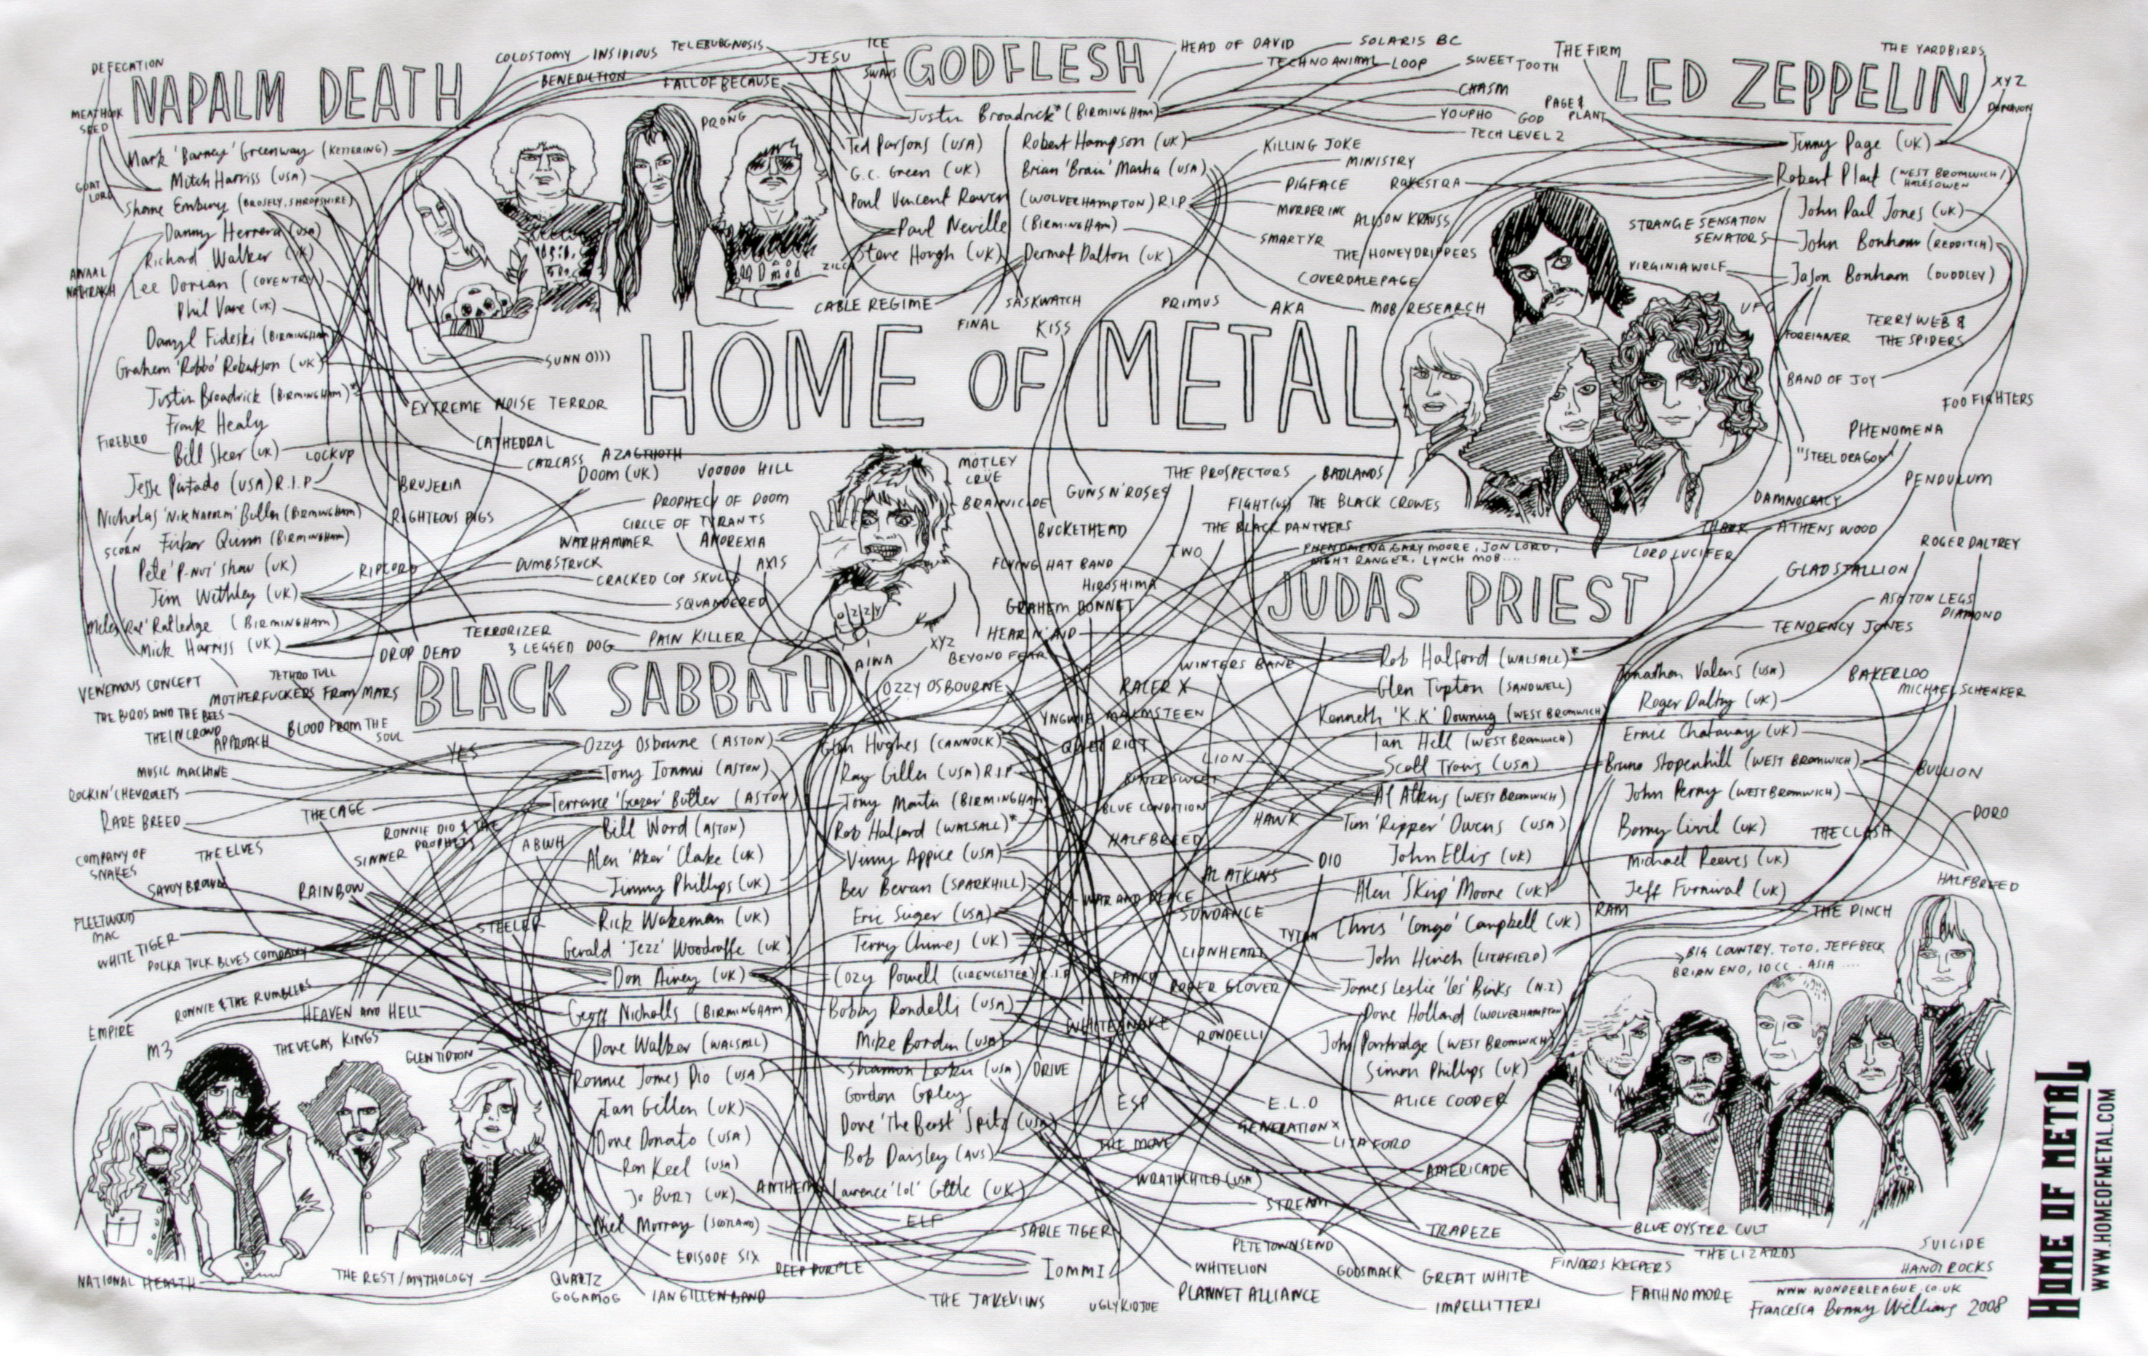 DEFECATION
NAPALM DEATH
MEATHOOK SEED
Mark 'Barney' Greenway (KETTERING)
Mitch Harriss (USA)
GOAT LORD
Shane Embury (BROSELY, SHROPSHIRE)
Danny Herrera (USA)
Richard Walker (UK)
ANAAL NATHRAKH
Lee Dorian (COVENTRY)
Phil Vane (UK)
Darryl Fideski (BIRMINGHAM)
Graham 'Robbo' Robertson (UK)
Justin Broadrick (BIRMINGHAM)*
Frank Healy
FIREBIRD
Bill Steer (UK)
LOCKUP
Jesse Pintado (USA) R.I.P
Nicholas 'NIK NAPALM' Bullen (BIRMINGHAM)
SCORN
Finbar Quinn (BIRMINGHAM)
Pete 'P-NUT' Shaw (UK)
RIPCORD
Jim Wethley (UK)
Miles 'Rat' Ratledge (BIRMINGHAM)
Mick Harriss (UK)
COLOSTOMY
INSIDIOUS
TELEBUBGNOSIS
BENEDICTION
FALL OF BECAUSE
JESU
ICE
SWANS
PRONG
GODFLESH
Justin Broadrick* (BIRMINGHAM)
Ted Parsons (USA)
Robert Hampson (UK)
G.C. Green (UK)
Brian 'Brain' Mantia (USA)
Paul Vincent Raven (WOLVERHAMPTON) R.I.P
Paul Neville (BIRMINGHAM)
Steve Hough (UK)
Dermot Dalton (UK)
CABLE REGIME
SASKWATCH
FINAL
KISS
PRIMUS
AKA
MOB RESEARCH
HEAD OF DAVID
SOLARIS BC
TECHNO ANIMAL
LOOP
SWEET TOOTH
CHASM
YOUPHO
GOD
TECH LEVEL 2
KILLING JOKE
MINISTRY
PIGFACE
MURDER INC
SMARTYR
THE FIRM
PAGE & PLANT
ROKESTRA
ALISON KRAUSS
THE HONEYDRIPPERS
COVERDALE PAGE
LED ZEPPELIN
THE YARDBIRDS
XYZ
DONAVON
Jimmy Page (UK)
Robert Plant (WEST BROMWICH / HALESOWEN
John Paul Jones (UK)
STRANGE SENSATION
SENATORS
John Bonham (REDDITCH)
VIRGINIA WOLF
Jason Bonham (DUDDLEY)
UFO
FOREIGNER
TERRY WEB & THE SPIDERS
BAND OF JOY
FOO FIGHTERS
PHENOMENA
"STEEL DRAGON"
PENDULUM
DAMNOCRACY
THARK
ATHENS WOOD
ROGER DALTREY
LORD LUCIFER
GLADSTALLION
ASHTON LEGS DIAMOND
TENDENCY JONES
BAKERLOO
MICHAEL SCHENKER
HOME OF METAL
SUNN O)))
EXTREME NOISE TERROR
CATHEDRAL
CARCASS
AZAGTHOTH
DOOM (UK)
VOODOO HILL
BRUJERIA
PROPHECY OF DOOM
RIGHTEOUS PIGS
CIRCLE OF TYRANTS
WARHAMMER
ANOREXIA
DUMBSTRUCK
AXIS
CRACKED COP SKULLS
SQUANDERED
TERRORIZER
3 LEGGED DOG
PAIN KILLER
DROP DEAD
OZZY
MOTLEY CRUE
BRAINICIDE
GUNS N' ROSES
BUCKETHEAD
FLYING HAT BAND
HIROSHIMA
GRAHEM BONNET
HEAR N' AID
XYZ
BEYOND FEAR
AINA
OZZY OSBOURNE
THE PROSPECTORS
BADLANDS
FIGHT (US)
THE BLACK CROWES
THE BLACK PANTHERS
TWO
PHENOMENA, GARY MOORE, JON LORD,
NIGHT RANGER, LYNCH MOB....
JUDAS PRIEST
WINTERS BANE
Rob Halford (WALSALL)*
Glen Tipton (SANDWELL)
Kenneth 'K.K' Downing (WEST BROMWICH)
Ian Hill (WEST BROMWICH)
Scott Travis (USA)
Al Atkins (WEST BROMWICH)
Tim 'Ripper' Owens (USA)
John Ellis (UK)
Alan 'Skip' Moore (UK)
Chris 'Congo' Campbell (UK)
John Hinch (LITCHFIELD)
James Leslie 'Les' Binks (N.I)
Dave Holland (WOLVERHAMPTON)
John Partridge (WEST BROMWICH)
Simon Phillips (UK)
Jonathan Valens (USA)
Roger Daltry (UK)
Ernie Chataway (UK)
Bruno Stapenhill (WEST BROMWICH)
John Perry (WEST BROMWICH)
Barny Civil (UK)
Michael Reeves (UK)
Jeff Furnival (UK)
BULLION
DORO
THE CLASH
HALFBREED
THE PINCH
RAM
BIG COUNTRY, TOTO, JEFF BECK
BRIAN ENO, 10CC, ASIA ....
VENEMOUS CONCEPT
JETHRO TULL
MOTHERFUCKERS FROM MARS
THE BIRDS AND THE BEES
BLOOD FROM THE SOUL
THE IN CROWD
APPROACH
MUSIC MACHINE
ROCKIN' CHEVROLETS
RARE BREED
THE CAGE
YES
COMPANY OF SNAKES
THE ELVES
RONNIE DIO & THE PROPHETS
SINNER
ABWH
SAVOY BROWN
RAINBOW
FLEETWOOD MAC
STEELER
WHITE TIGER
POLKA TULK BLUES COMPANY
RONNIE & THE RUMBLERS
EMPIRE
HEAVEN AND HELL
M3
THE VEGAS KINGS
GLEN TIPTON
BLACK SABBATH
Ozzy Osbourne (ASTON)
Tony Iommi (ASTON)
Terrance 'Geezer' Butler (ASTON)
Bill Ward (ASTON)
Alan 'Aker' Clarke (UK)
Jimmy Phillips (UK)
Rick Wakeman (UK)
Gerald 'Jezz' Woodroffe (UK)
Don Airey (UK)
Geoff Nicholls (BIRMINGHAM)
Dave Walker (WALSALL)
Ronnie James Dio (USA)
Ian Gillen (UK)
Dave Donato (USA)
Ron Keel (USA)
Jo BURT (UK)
Niel Murray (SCOTLAND)
Glen Hughes (CANNOCK)
Ray Gillen (USA) R.I.P
Tony Martin (BIRMINGHAM)
Rob Halford (WALSALL)*
Vinny Appice (USA)
Bev Bevan (SPARKHILL)
Eric Singer (USA)
Terry Chimes (UK)
Cozy Powell (CIRENCESTER) R.I.P
Bobby Rondelli (USA)
Mike Bordin (USA)
Shannon Larkin (USA)
Gordon Copley
Dave 'The Beast' Spitz (USA)
Bob Daisley (AUS)
Laurence 'Lol' Cottle (UK)
RACER X
YNGWIE MALMSTEEN
QUIET RIOT
LION
BITTERSWEET
BLUE CONDITION
HALFBREED
HAWK
DIO
AL ATKINS
WAR AND PEACE
SUNDANCE
TYTAN
LIONHEART
ROGER GLOVER
WHITESNAKE
RONDELLI
DRIVE
ESP
E.L.O
ALICE COOPER
GENERATION X
LITA FORD
THE MOVE
AMERICADE
WRATHCHILD (USA)
STREAM
ANTHEM
ELF
SABLE TIGER
TRAPEZE
PETE TOWNSEND
BLUE OYSTER CULT
THE LIZARDS
FINDERS KEEPERS
SUICIDE
HANOI ROCKS
EPISODE SIX
DEEP PURPLE
IOMMI
WHITELION
GODSMACK
GREAT WHITE
NATIONAL HEALTH
THE REST / MYTHOLOGY
QUARTZ
GOGAMOG
IAN GILLEN BAND
THE JAKEVIINS
UGLY KID JOE
PLANNET ALLIANCE
IMPELLITTERI
FAITH NO MORE
WWW.WONDERLEAGUE.CO.UK
Francesca Bonny Williams 2008
HOME OF METAL
WWW.HOMEOFMETAL.COM